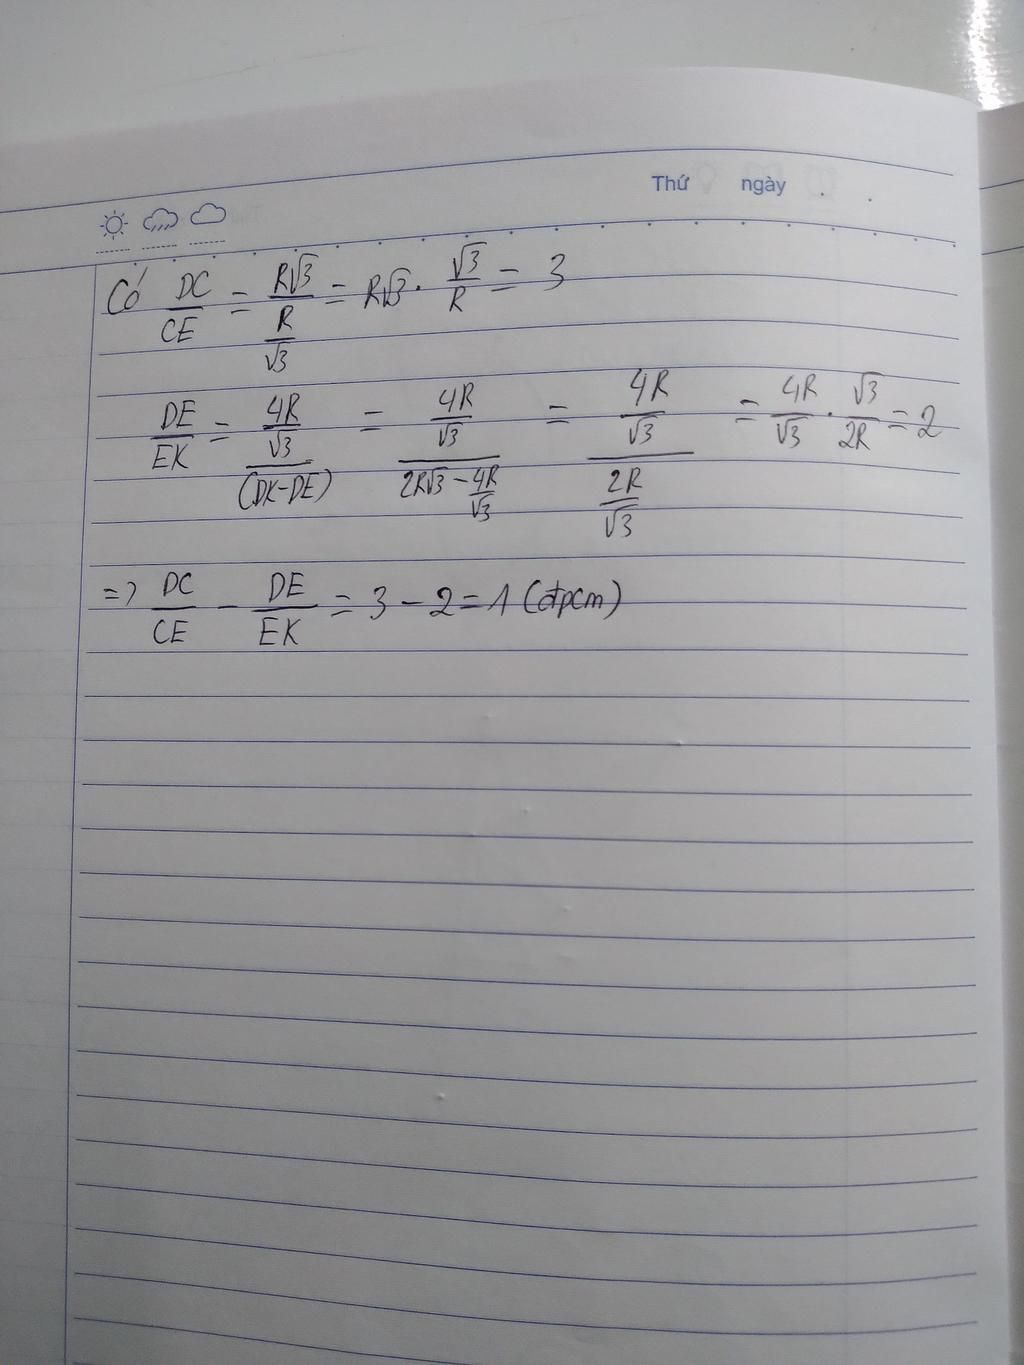 Thứ ngày
Có DC/CE = R√3/(R/√3) = R√3 . √3/R = 3
DE/EK = (4R/√3)/(DK-DE) = (4R/√3)/(2R√3 - 4R/√3) = (4R/√3)/(2R/√3) = 4R/√3 . √3/2R = 2
=> DC/CE - DE/EK = 3 - 2 = 1 (đpcm)